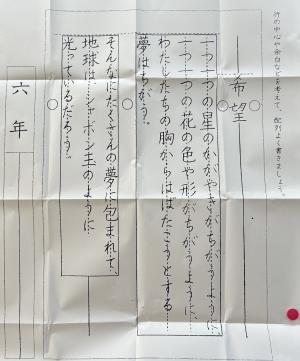 行の中心や余白などを考えて、配列よく書きましょう。
希望
一つ一つの星のかがやきがちがうように、
一つ一つの花の色や形がちがうように、
わたしたちの胸からはばたこうとする
夢はちがう。
そんなにたくさんの夢に包まれて、
地球は…シャボン玉のように…
光っているだろう…。
六年